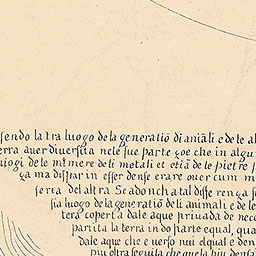 sendo la tra luogo de la generatiõ di aniãli e de le al
erra auer diuersita nele sue parte çoe che in algu
luogi de le minere deli metali et etiã de le pietre
ça ma disfar in esser dense e rare ouer cum m
seria del altra Se adonch a tal differenza s
sia luogo de la generatiõ deli animali e de le
tera coperta dale aque priuada de nece
partita la terra in do parte equal, qua
dale aque che e uerso nui elqual e den
piu oltra seguita che quela piu densa